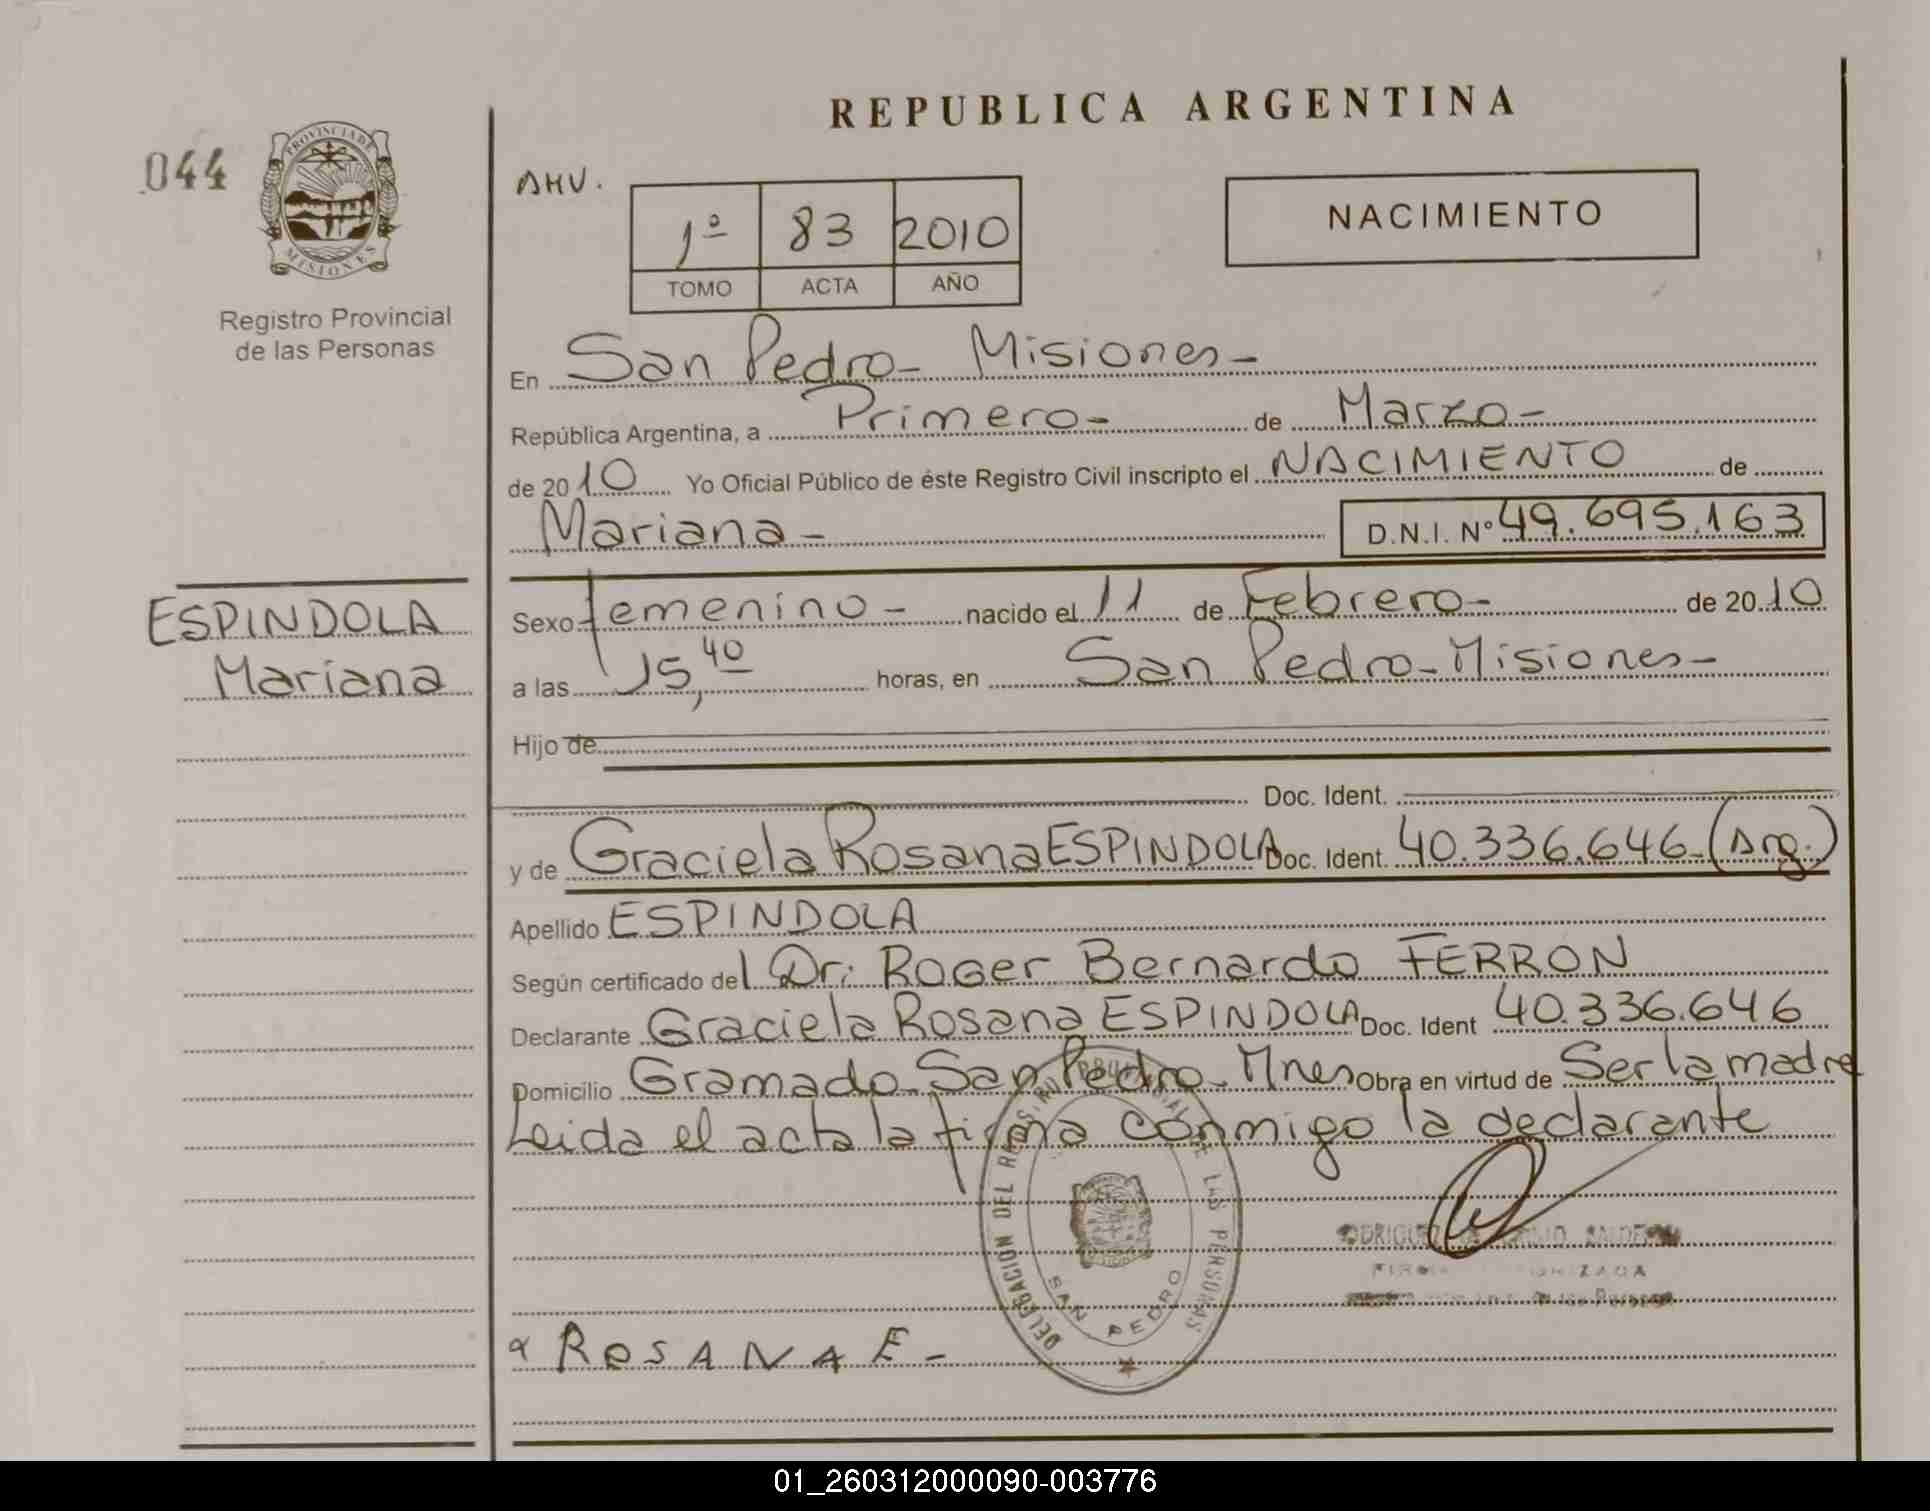 REPUBLICA ARGENTINA
044
PROVINCIA DE
MISIONES
Registro Provincial
de las Personas
AHV.
1º 83 2010
TOMO ACTA AÑO
NACIMIENTO
En San Pedro- Misiones-
República Argentina, a Primero- de Marzo-
de 2010 Yo Oficial Público de éste Registro Civil inscripto el NACIMIENTO de
Mariana- D.N.I. Nº 49.695.163
ESPINDOLA
Mariana
Sexo femenino- nacido el 11 de Febrero- de 2010
a las 15,40 horas, en San Pedro-Misiones-
Hijo de
Doc. Ident.
y de Graciela Rosana ESPINDOLA Doc. Ident. 40.336.646-(Arg.)
Apellido ESPINDOLA
Según certificado del Dr. Roger Bernardo FERRON
Declarante Graciela Rosana ESPINDOLA Doc. Ident 40.336.646
Domicilio Gramado-San Pedro-Mnes Obra en virtud de Ser la madre
Leida el acta la firma conmigo la declarante
DELEGACION DEL REGISTRO PROVINCIAL DE LAS PERSONAS
SAN PEDRO
ROSANA E-
01_260312000090-003776